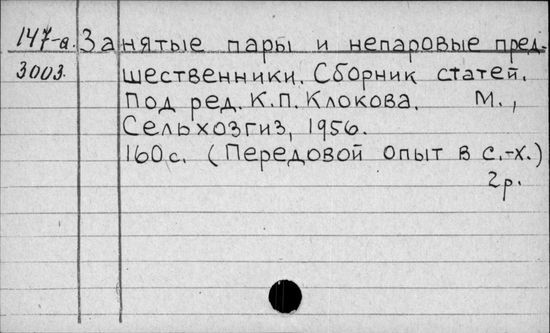 147-а. Занятые пары и непаровые пред-
3003. шественники. Сборник статей.
Под ред. К.П. Клокова. М.,
Сельхозгиз, 1956.
160 с. (Передовой опыт в с.-х.)
2р.